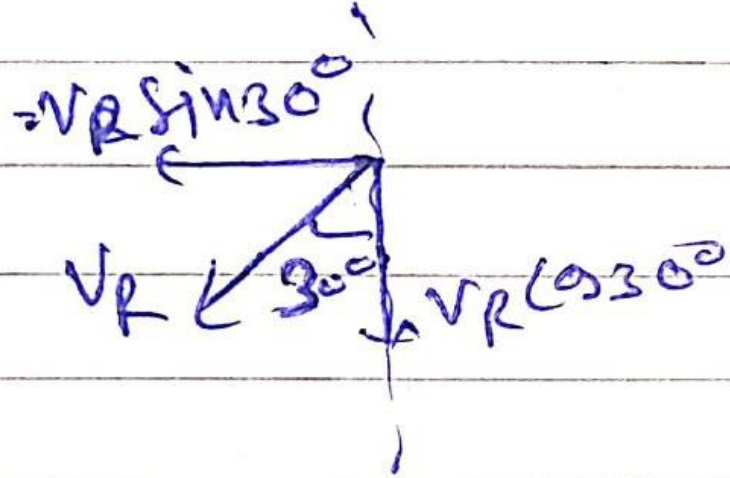 =VR Sin30°
VR
30°
VR Cos30°